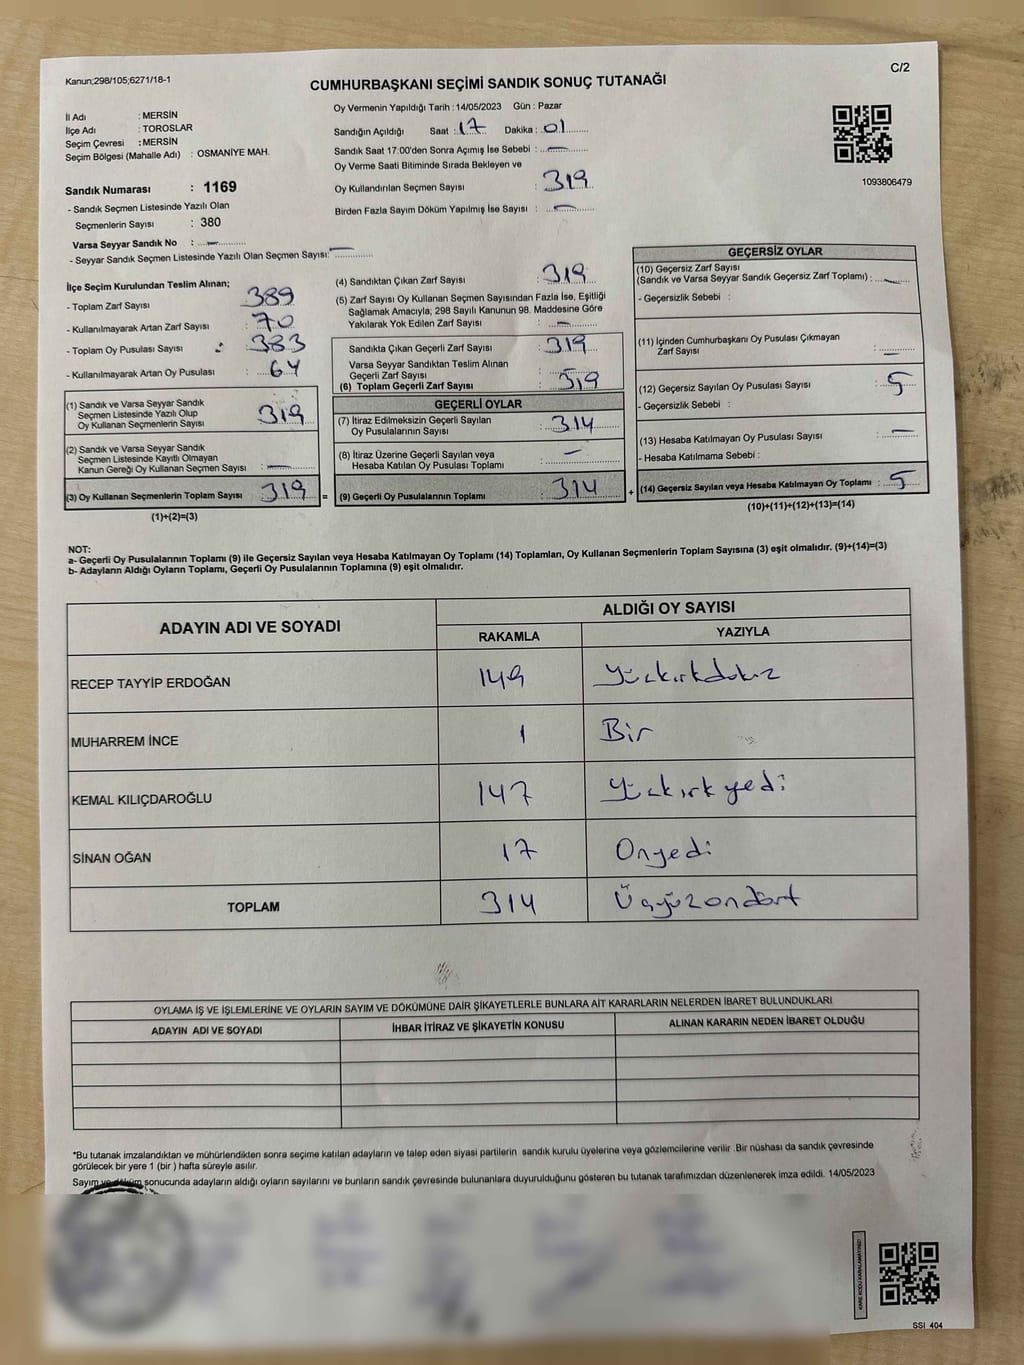 Kanun;298/105;6271/18-1
C/2
CUMHURBAŞKANI SEÇİMİ SANDIK SONUÇ TUTANAĞI
İl Adı : MERSİN
İlçe Adı : TOROSLAR
Seçim Çevresi : MERSİN
Seçim Bölgesi (Mahalle Adı) : OSMANİYE MAH.
Sandık Numarası : 1169
- Sandık Seçmen Listesinde Yazılı Olan
Seçmenlerin Sayısı : 380
Varsa Seyyar Sandık No : —
- Seyyar Sandık Seçmen Listesinde Yazılı Olan Seçmen Sayısı: —
Oy Vermenin Yapıldığı Tarih : 14/05/2023 Gün : Pazar
Sandığın Açıldığı Saat : 17 Dakika : 01
Sandık Saat 17:00'den Sonra Açımış İse Sebebi : —
Oy Verme Saati Bitiminde Sırada Bekleyen ve
Oy Kullandırılan Seçmen Sayısı : 319
Birden Fazla Sayım Döküm Yapılmış İse Sayısı : —
1093806479
İlçe Seçim Kurulundan Teslim Alınan;
- Toplam Zarf Sayısı : 389
- Kullanılmayarak Artan Zarf Sayısı : 70
- Toplam Oy Pusulası Sayısı : 383
- Kullanılmayarak Artan Oy Pusulası : 64
(1) Sandık ve Varsa Seyyar Sandık
Seçmen Listesinde Yazılı Olup
Oy Kullanan Seçmenlerin Sayısı : 319
(2) Sandık ve Varsa Seyyar Sandık
Seçmen Listesinde Kayıtlı Olmayan
Kanun Gereği Oy Kullanan Seçmen Sayısı : —
(3) Oy Kullanan Seçmenlerin Toplam Sayısı : 319 =
(1)+(2)=(3)
(4) Sandıktan Çıkan Zarf Sayısı : 319
(5) Zarf Sayısı Oy Kullanan Seçmen Sayısından Fazla İse, Eşitliği
Sağlamak Amacıyla; 298 Sayılı Kanunun 98. Maddesine Göre
Yakılarak Yok Edilen Zarf Sayısı : —
Sandıkta Çıkan Geçerli Zarf Sayısı : 319
Varsa Seyyar Sandıktan Teslim Alınan
Geçerli Zarf Sayısı :
(6) Toplam Geçerli Zarf Sayısı : 319
GEÇERLİ OYLAR
(7) İtiraz Edilmeksizin Geçerli Sayılan
Oy Pusulalarının Sayısı : 314
(8) İtiraz Üzerine Geçerli Sayılan veya
Hesaba Katılan Oy Pusulası Toplamı : —
(9) Geçerli Oy Pusulalarının Toplamı : 314 +
GEÇERSİZ OYLAR
(10) Geçersiz Zarf Sayısı
(Sandık ve Varsa Seyyar Sandık Geçersiz Zarf Toplamı) : —
- Geçersizlik Sebebi :
(11) İçinden Cumhurbaşkanı Oy Pusulası Çıkmayan
Zarf Sayısı : —
(12) Geçersiz Sayılan Oy Pusulası Sayısı : 5
- Geçersizlik Sebebi :
(13) Hesaba Katılmayan Oy Pusulası Sayısı : —
- Hesaba Katılmama Sebebi :
(14) Geçersiz Sayılan veya Hesaba Katılmayan Oy Toplamı : 5
(10)+(11)+(12)+(13)=(14)
NOT:
a- Geçerli Oy Pusulalarının Toplamı (9) ile Geçersiz Sayılan veya Hesaba Katılmayan Oy Toplamı (14) Toplamları, Oy Kullanan Seçmenlerin Toplam Sayısına (3) eşit olmalıdır. (9)+(14)=(3)
b- Adayların Aldığı Oyların Toplamı, Geçerli Oy Pusulalarının Toplamına (9) eşit olmalıdır.
ADAYIN ADI VE SOYADI ALDIĞI OY SAYISI
RAKAMLA YAZIYLA
RECEP TAYYİP ERDOĞAN 149 Yüzkırkdokuz
MUHARREM İNCE 1 Bir
KEMAL KILIÇDAROĞLU 147 Yüzkırkyedi
SİNAN OĞAN 17 Onyedi
TOPLAM 314 Üçyüzondört
OYLAMA İŞ VE İŞLEMLERİNE VE OYLARIN SAYIM VE DÖKÜMÜNE DAİR ŞİKAYETLERLE BUNLARA AİT KARARLARIN NELERDEN İBARET BULUNDUKLARI
ADAYIN ADI VE SOYADI İHBAR İTİRAZ VE ŞİKAYETİN KONUSU ALINAN KARARIN NEDEN İBARET OLDUĞU
*Bu tutanak imzalandıktan ve mühürlendikten sonra seçime katılan adayların ve talep eden siyasi partilerin sandık kurulu üyelerine veya gözlemcilerine verilir .Bir nüshası da sandık çevresinde
görülecek bir yere 1 (bir ) hafta süreyle asılır.
Sayım ve döküm sonucunda adayların aldığı oyların sayılarını ve bunların sandık çevresinde bulunanlara duyurulduğunu gösteren bu tutanak tarafımızdan düzenlenerek imza edildi. 14/05/2023
KARE KODU KARALAMAYINIZ!
SSI_404